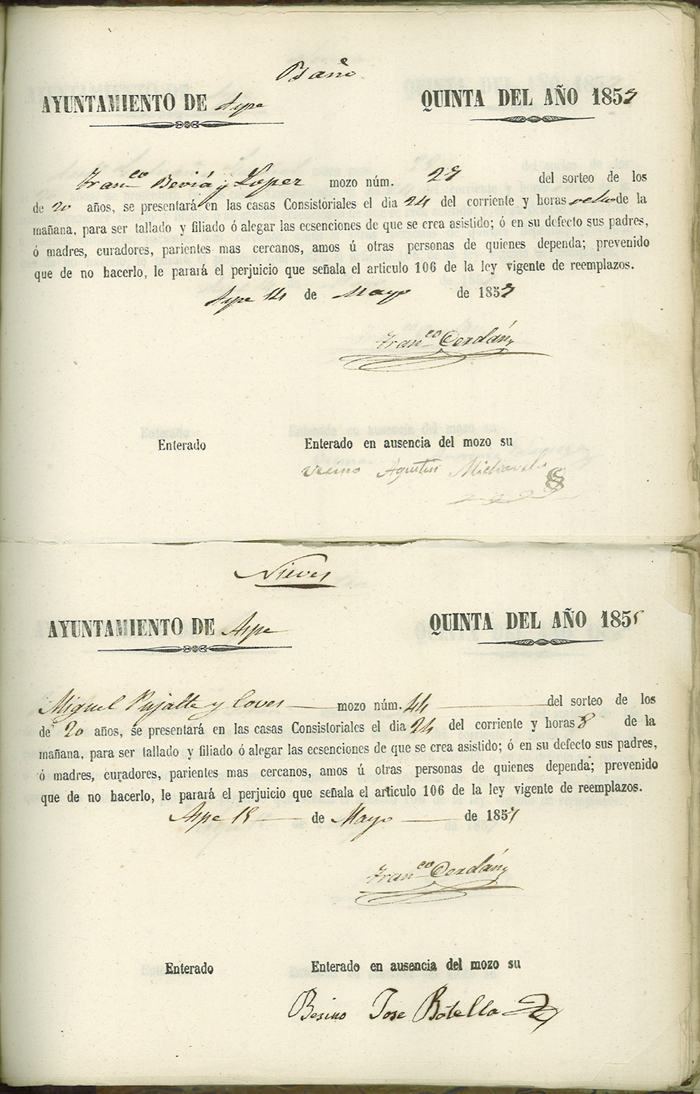 AYUNTAMIENTO DE Aspe
QUINTA DEL AÑO 1857
Franco Beviá y Lopez mozo núm. 29 del sorteo de los
de 20 años, se presentará en las casas Consistoriales el dia 24 del corriente y horas ocho de la
mañana, para ser tallado y filiado ó alegar las ecsenciones de que se crea asistido; ó en su defecto sus padres,
ó madres, curadores, parientes mas cercanos, amos ú otras personas de quienes dependa; prevenido
que de no hacerlo, le parará el perjuicio que señala el articulo 106 de la ley vigente de reemplazos.
Aspe 14 de Mayo de 1857
Franco Cerdán
Enterado
Enterado en ausencia del mozo su
vecino Agustin
Nieves
AYUNTAMIENTO DE Aspe
QUINTA DEL AÑO 185
Miguel Pujalte y Cover mozo núm. 44 del sorteo de los
de 20 años, se presentará en las casas Consistoriales el dia 24 del corriente y horas 8 de la
mañana, para ser tallado y filiado ó alegar las ecsenciones de que se crea asistido; ó en su defecto sus padres,
ó madres, curadores, parientes mas cercanos, amos ú otras personas de quienes dependa; prevenido
que de no hacerlo, le parará el perjuicio que señala el articulo 106 de la ley vigente de reemplazos.
Aspe 18 de Mayo de 1857
Franco Cerdán
Enterado
Enterado en ausencia del mozo su
Besino Jose Botella